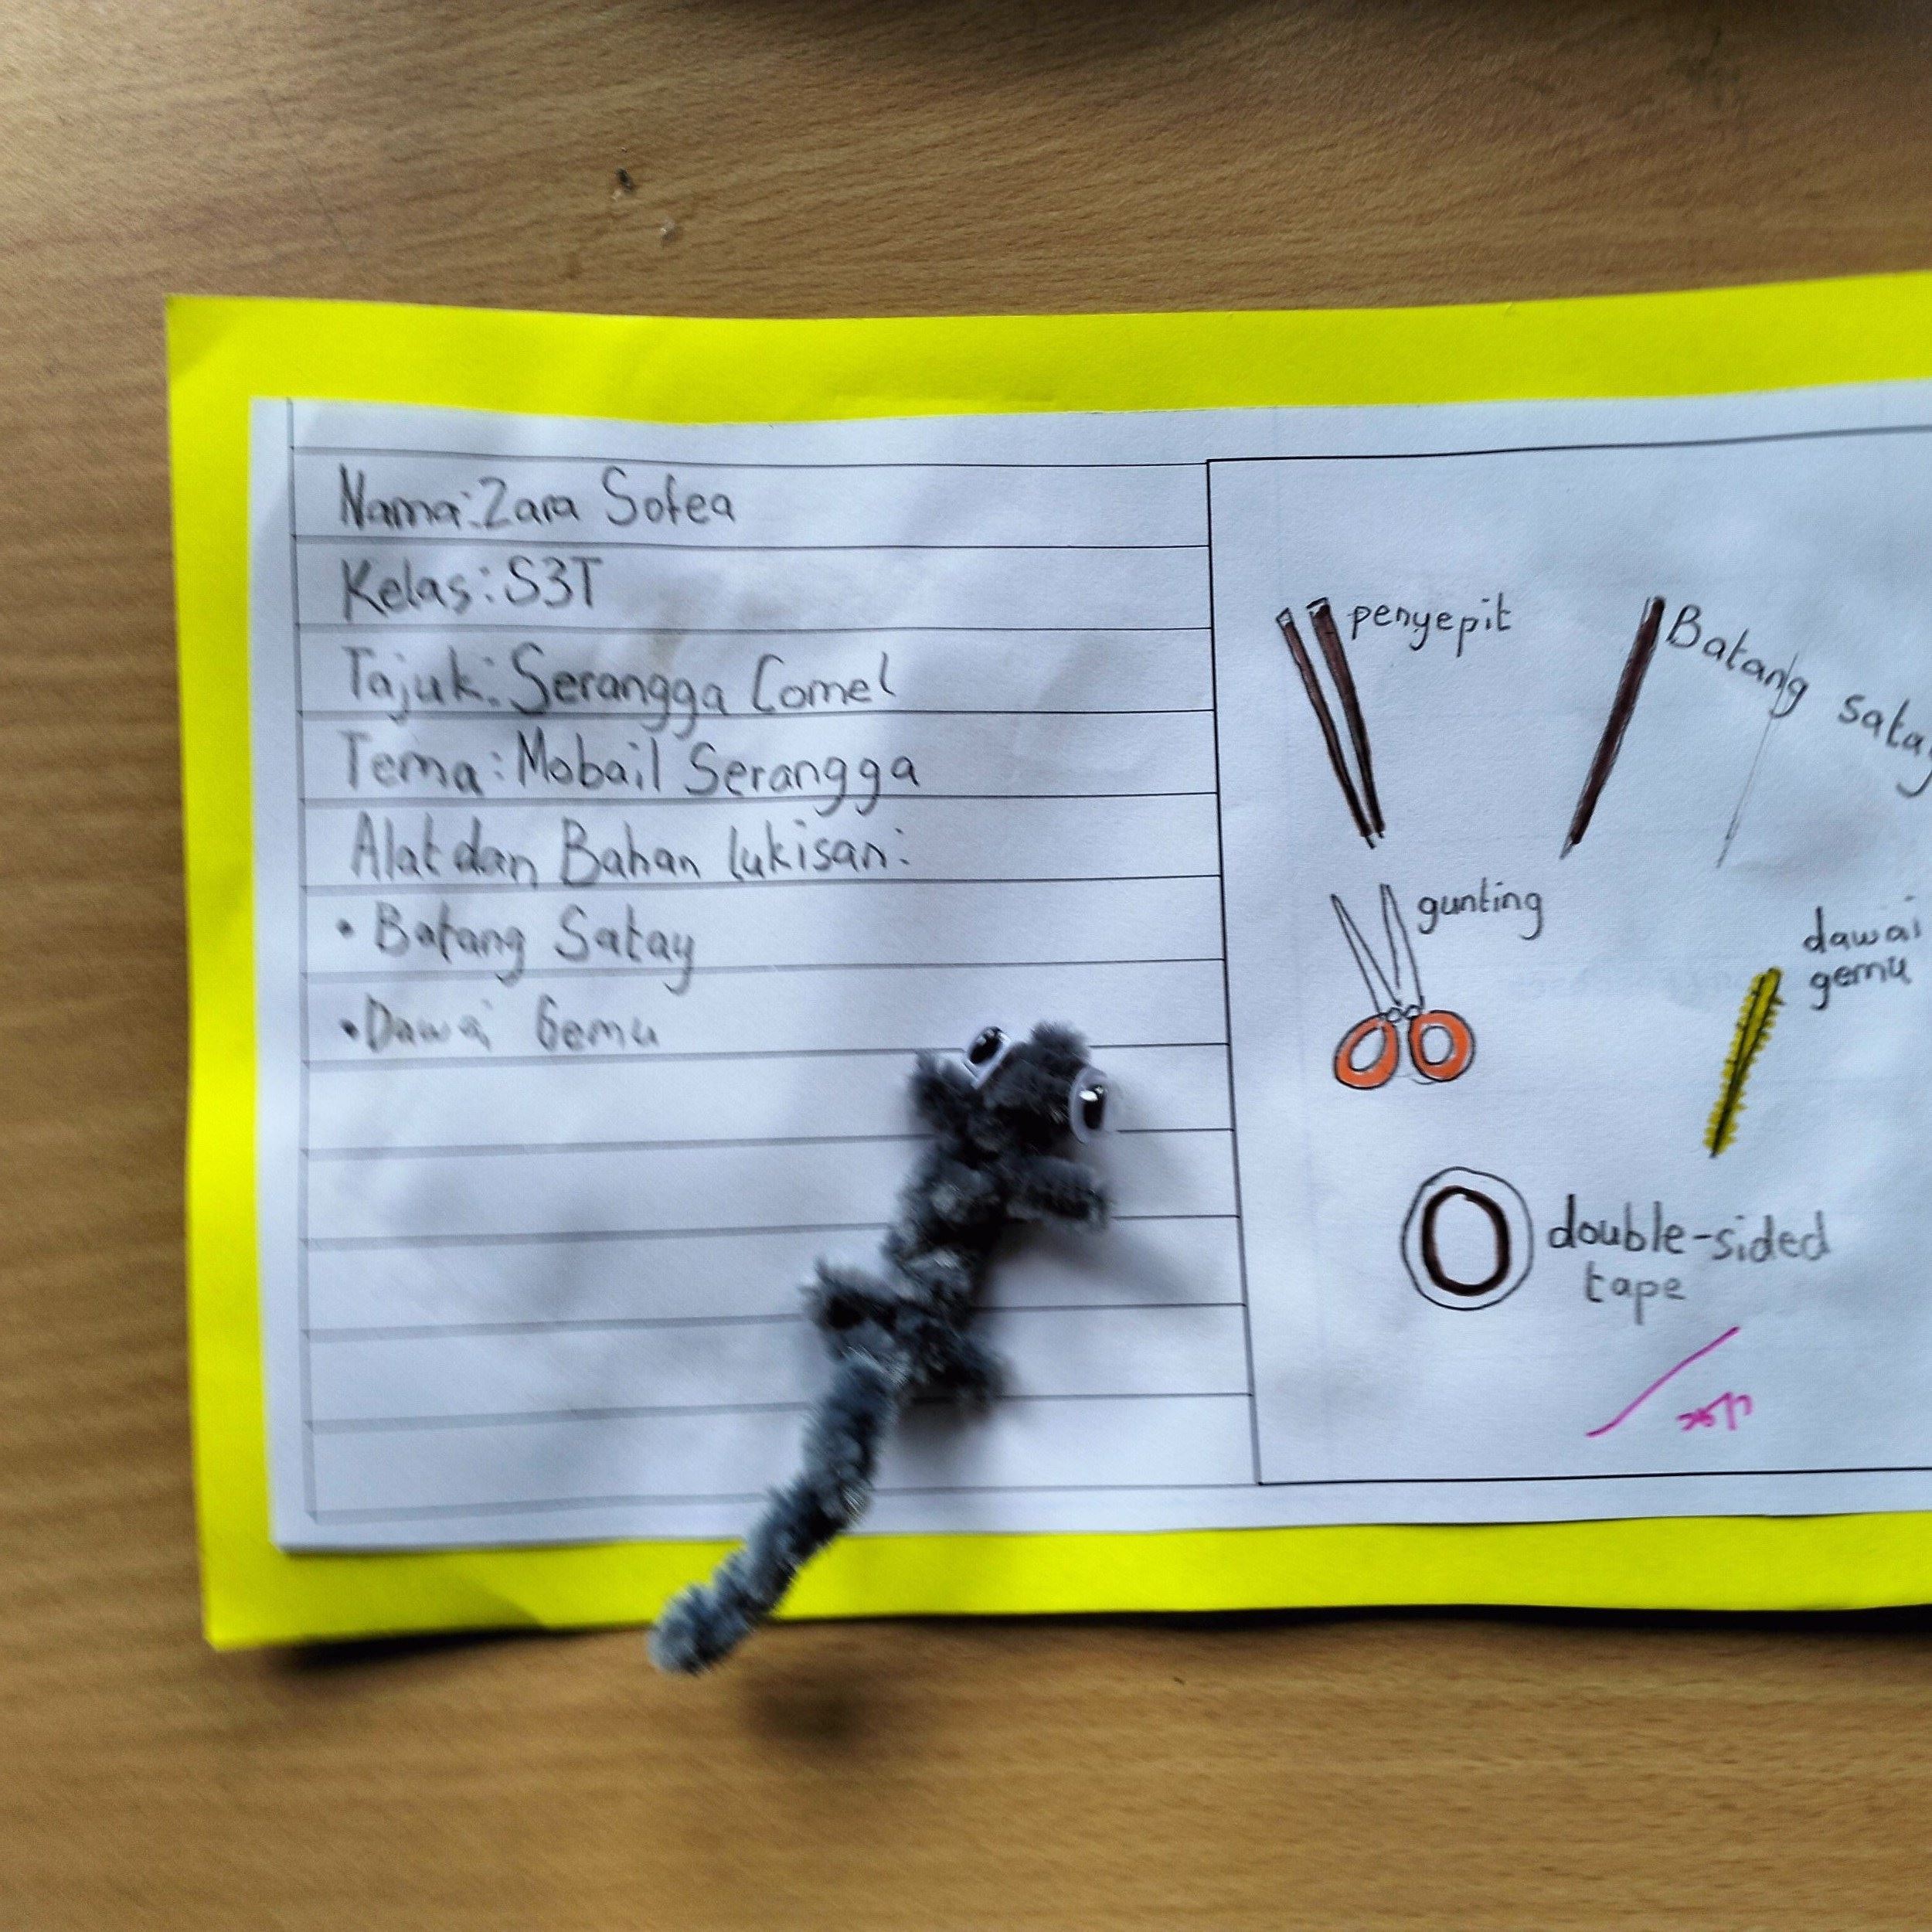 Nama: Zara Sofea
Kelas: S3T
Tajuk: Serangga Comel
Tema: Mobail Serangga
Alat dan Bahan lukisan:
• Batang Satay
• Dawai Gemu
penyepit
Batang satay
gunting
dawai
gemu
double-sided
tape